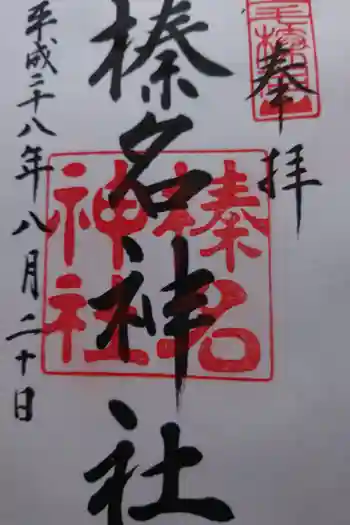 奉拝
榛名神社
平成二十八年八月二十日
榛名
神社